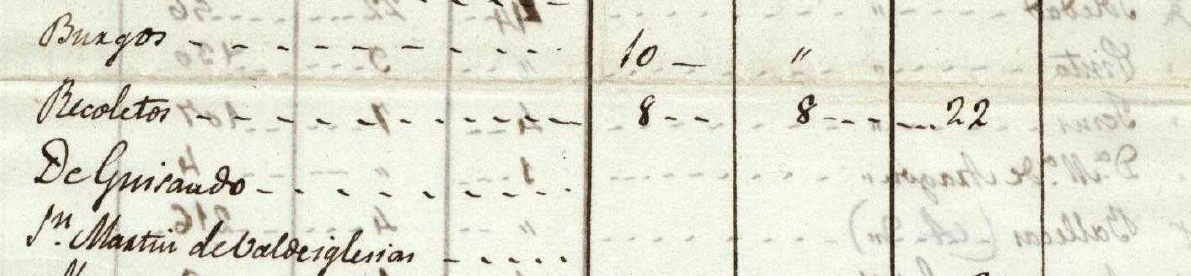 Burgos - - - - - - - - - 10 - "
Recoletos - - - - - - - - - 8 - - 8 - - - - 22
De Guisando - - - - - - - -
Sn. Martin de Valdeiglesias - - - - -